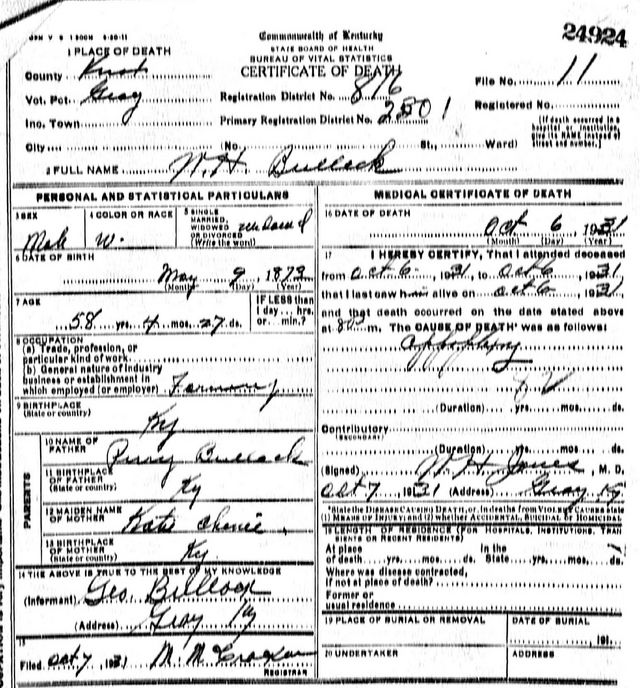 FORM V S 1 500M 6-20-11
Commonwealth of Kentucky
24924
STATE BOARD OF HEALTH
BUREAU OF VITAL STATISTICS
CERTIFICATE OF DEATH
1 PLACE OF DEATH
County Knox
File No. 11
Vot. Pct. Gray
Registration District No. 816
Registered No.
Inc. Town
Primary Registration District No. 2501
[If death occurred in a hospital or institution, give its NAME instead of street and number.]
City (No. St., Ward)
2 FULL NAME W. H. Bullock
PERSONAL AND STATISTICAL PARTICULARS
3 SEX
Male
4 COLOR OR RACE
W.
5 SINGLE
MARRIED,
WIDOWED
OR DIVORCED
(Write the word)
6 DATE OF BIRTH
May 9, 1873
(Month) (Day) (Year)
7 AGE
58 yrs. 4 mos. 27 ds.
IF LESS than
1 day ... hrs.
or ... min.?
8 OCCUPATION
(a) Trade, profession, or
particular kind of work
(b) General nature of industry
business or establishment in
which employed (or employer) Farming
9 BIRTHPLACE
(State or country)
Ky
PARENTS
10 NAME OF
FATHER
Perry Bullock
11 BIRTHPLACE
OF FATHER
(State or country)
Ky
12 MAIDEN NAME
OF MOTHER
Kate
13 BIRTHPLACE
OF MOTHER
(State or country)
Ky.
14 THE ABOVE IS TRUE TO THE BEST OF MY KNOWLEDGE
(Informant) Geo. Bullock
(Address) Gray Ky
15
Filed Oct 7, 1931 M. M.
REGISTRAR
MEDICAL CERTIFICATE OF DEATH
16 DATE OF DEATH
Oct 6 1931
(Month) (Day) (Year)
17 I HEREBY CERTIFY, That I attended deceased
from Oct 6, 1931, to Oct 6, 1931
that I last saw him alive on Oct 6, 1931
and that death occurred on the date stated above
at m. The CAUSE OF DEATH* was as follows:
(Duration) yrs. mos. ds.
Contributory
(SECONDARY)
(Duration) yrs. mos. ds.
(Signed) W. H. Jones, M. D.
Oct 7, 1931 (Address) Gray Ky.
*State the DISEASE CAUSING DEATH, or, in deaths from VIOLENT CAUSES state
(1) MEANS OF INJURY; and (2) whether ACCIDENTAL, SUICIDAL or HOMICIDAL
18 LENGTH OF RESIDENCE (FOR HOSPITALS, INSTITUTIONS, TRANSIENTS OR RECENT RESIDENTS)
At place In the
of death yrs. mos. ds. State yrs. mos. ds.
Where was disease contracted,
If not at place of death?
Former or
usual residence
19 PLACE OF BURIAL OR REMOVAL
DATE OF BURIAL
191
20 UNDERTAKER
ADDRESS